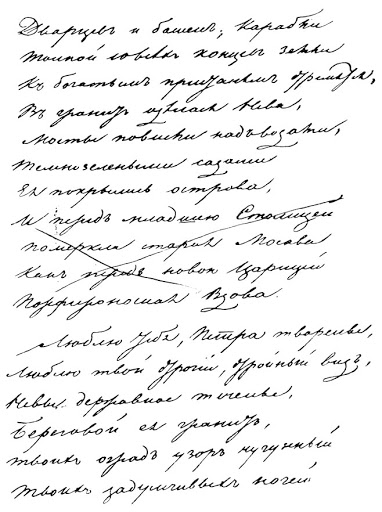 Дворцевъ и башенъ; карабли
Толпой со всѣхъ концевъ земли
Къ богатымъ пристанямъ стремятся;
Въ гранитъ одѣлася Нева;
Мосты повисли надъ водами;
Темнозелеными садами
Ея покрылись острова,
И передъ младшею Столицей
Померкла старая Москва
Какъ передъ новой Царицей
Порфироносная Вдова.
Люблю тебя, Петра творенье,
Люблю твой строгій, стройный видъ,
Невы державное теченье,
Береговой ея гранитъ,
твоихъ оградъ узоръ чугунный
твоихъ задумчивыхъ ночей